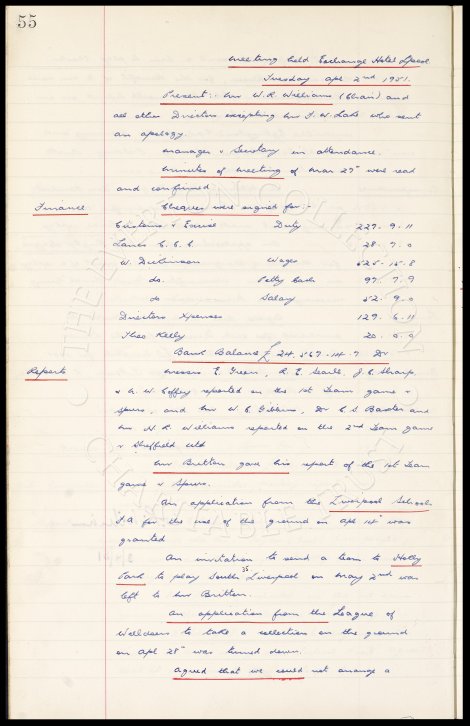 55
Meeting held Exchange Hotel L'pool
Tuesday Apl 2nd 1951.
Present:- Mr W. R. Williams (Chair) and
all other Directors excepting Mr J. W. who sent
an apology.
Manager & Secretary in attendance.
Minutes of Meeting of Mar 27th were read
and confirmed
Finance Cheques were signed for:-
Customs & Excise Duty 227. 9. 11
Lancs C. C. C. 28. 7. 0
W. Dickinson Wages 525. 15. 8
do. Petty Cash 97. 7. 9
do Salary 52. 9. 0
Directors Xpenses 129. 6. 11
Theo Kelly 20. 0. 0
Bank Balance £ 24,567. 14. 7 Dr
Reports Messrs E. Green, R. E. Searle, J. C. Sharp
& A. W. Coffey reported on the 1st Team game v
Spurs, and Mr W. C. Gibbins, Dr C. S. Baxter and
Mr W. R. Williams reported on the 2nd Team game
v Sheffield Utd
Mr Britton gave his report of the 1st Team
game v Spurs.
An application from the Liverpool Schools
F.A for the use of the ground on Apl 14th was
granted
An invitation to send a team to Holly
Park to play South Liverpool on May 2nd was
left to Mr Britton.
An application from the League of
Welldoers to take a collection on the ground
on Apl 28th was turned down.
Agreed that we could not arrange a
THE EVERTON COLLECTION
CHARITABLE TRUST